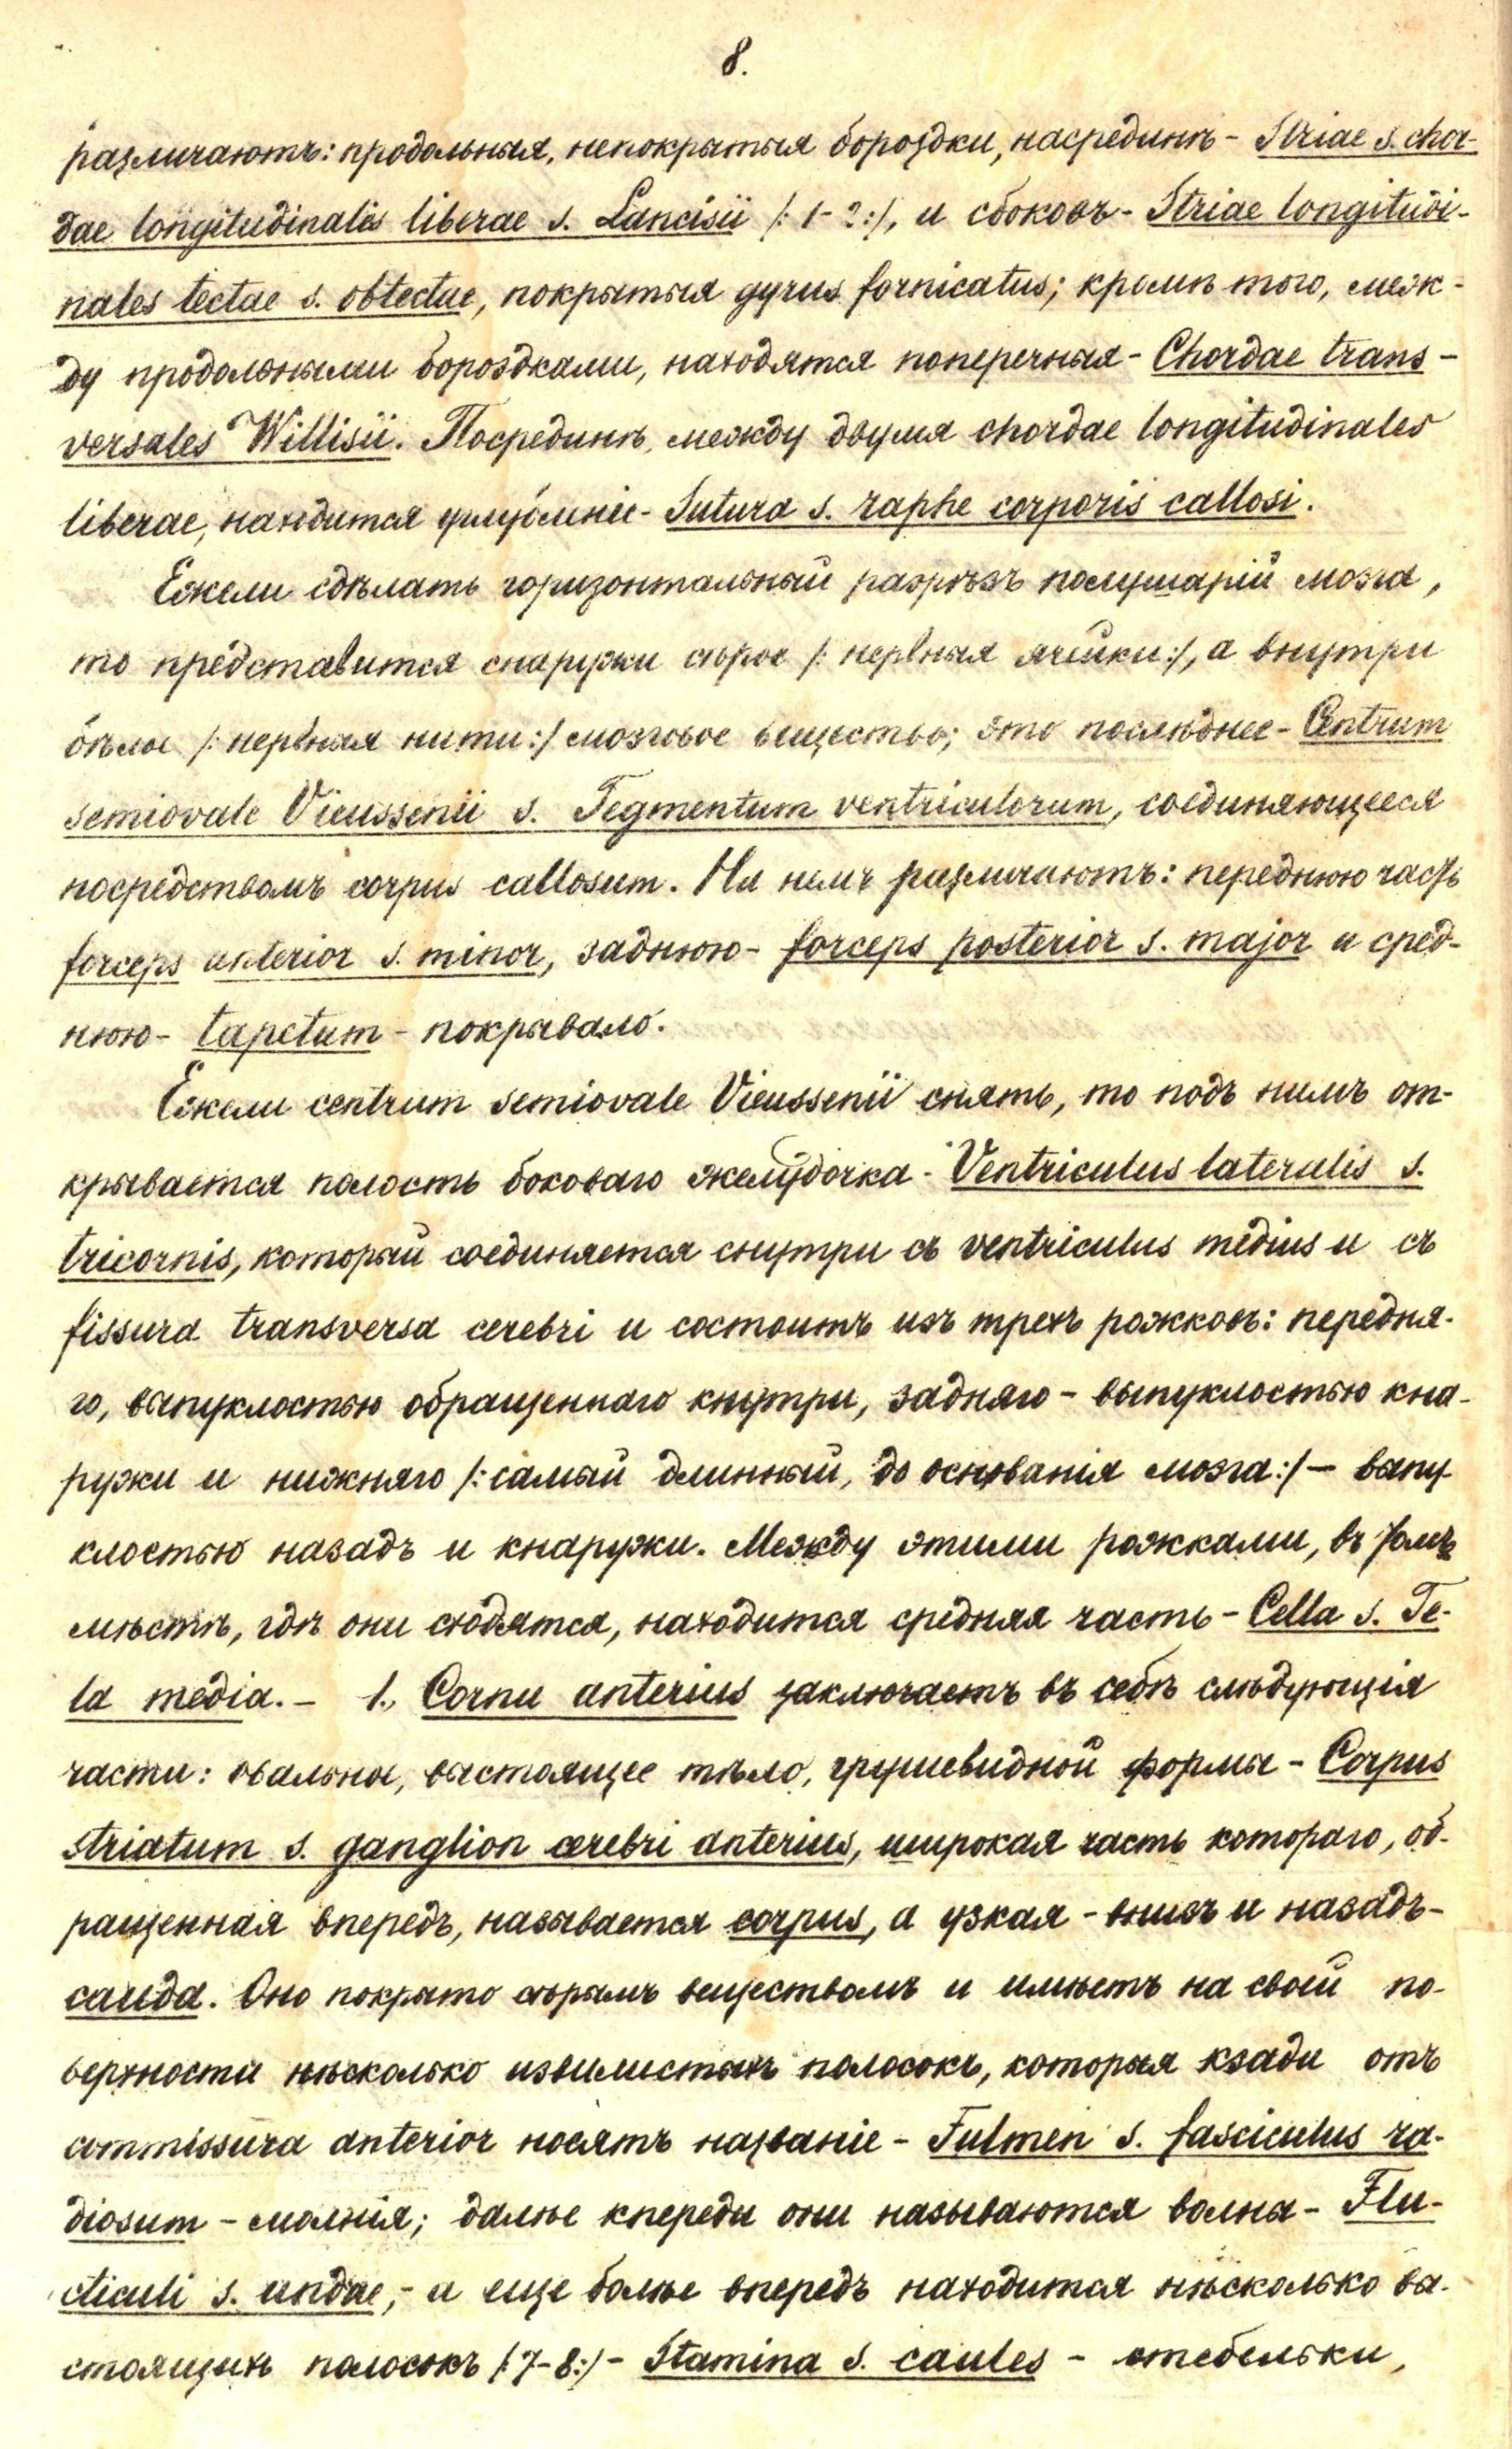 8.
различаютъ: продольныя, непокрытыя бороздки, насрединѣ - Striae s. chor-
dae longitudinales liberae s. Lancisii /: 1-2:/, и сбоковъ - Striae longitudi-
nales tectae s. obtectae, покрытыя gyrus fornicatus; кромѣ того, меж-
ду продольными бороздками, находятся поперечныя - Chordae trans-
versales Willisii. Посрединѣ, между двумя chordae longitudinales
liberae, находится углубленіе - Sutura s. raphe corporis callosi.
Ежели сдѣлать горизонтальный разрѣзъ полушарій мозга,
то представится снаружи сѣрое /: нервныя ячейки:/, а внутри
бѣлое /: нервныя нити:/ мозговое вещество; это послѣднее - Centrum
semiovale Vieussenii s. Tegmentum ventriculorum, соединяющееся
посредствомъ corpus callosum. На немъ различаютъ: переднюю часть
forceps anterior s. minor, заднюю - forceps posterior s. major и сред-
нюю - tapetum - покрывало.
Ежели centrum semiovale Vieussenii снять, то подъ нимъ от-
крывается полость боковаго желудочка - Ventriculus lateralis s.
tricornis, который соединяется снутри съ ventriculus medius и съ
fissura transversa cerebri и состоитъ изъ трехъ рожковъ: передня-
го, выпуклостью обращеннаго кнутри, задняго - выпуклостью кна-
ружи и нижняго /: самый длинный, до основанія мозга:/ - выпу-
клостью назадъ и кнаружи. Между этими рожками, въ томъ
мѣстѣ, гдѣ они сходятся, находится средняя часть - Cella s. Te-
la media. - 1., Cornu anterius заключаетъ въ себѣ слѣдующія
части: овальное, выстоящее тѣло, грушевидной формы - Corpus
striatum s. ganglion cerebri anterius, широкая часть котораго, об-
ращенная впередъ, называется corpus, а узкая - внизъ и назадъ -
cauda. Оно покрыто сѣрымъ веществомъ и имѣетъ на своей по-
верхности нѣсколько извилистыхъ полосокъ, которыя кзади отъ
commissura anterior носятъ названіе - Fulmen s. fasciculus ra-
diosum - молнія; далѣе кпереди они называются волны - Flu-
cticuli s. undae, - и еще болѣе впередъ находится нѣсколько вы-
стоящихъ полосокъ /: 7-8:/ - Stamina s. caules - стебельки,